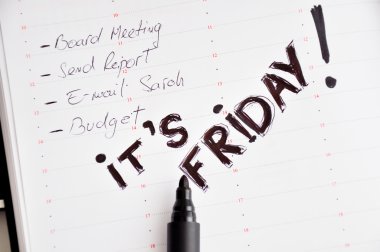 - Board Meeting
- Send Report
- E-mail Sarah
- Budget
iT'S
FRiDAY!